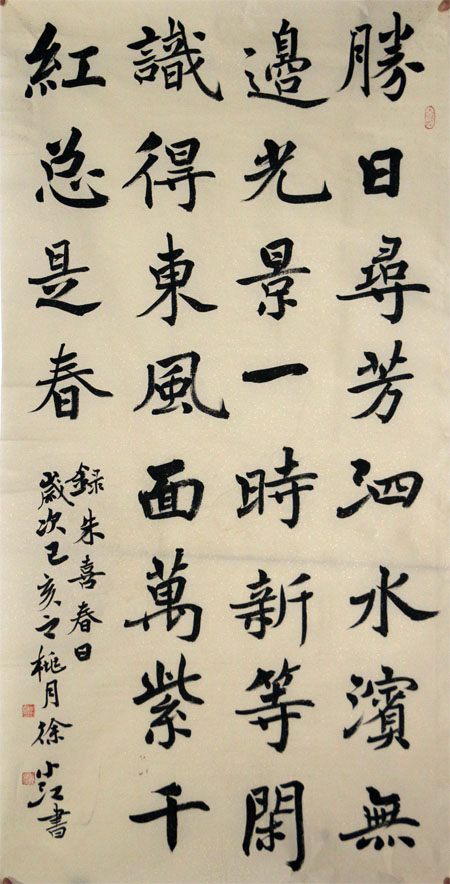 勝日尋芳泗水濱無
邊光景一時新等閑
識得東風面萬紫千
紅总是春
録朱喜春日
歲次己亥之桃月徐小江書